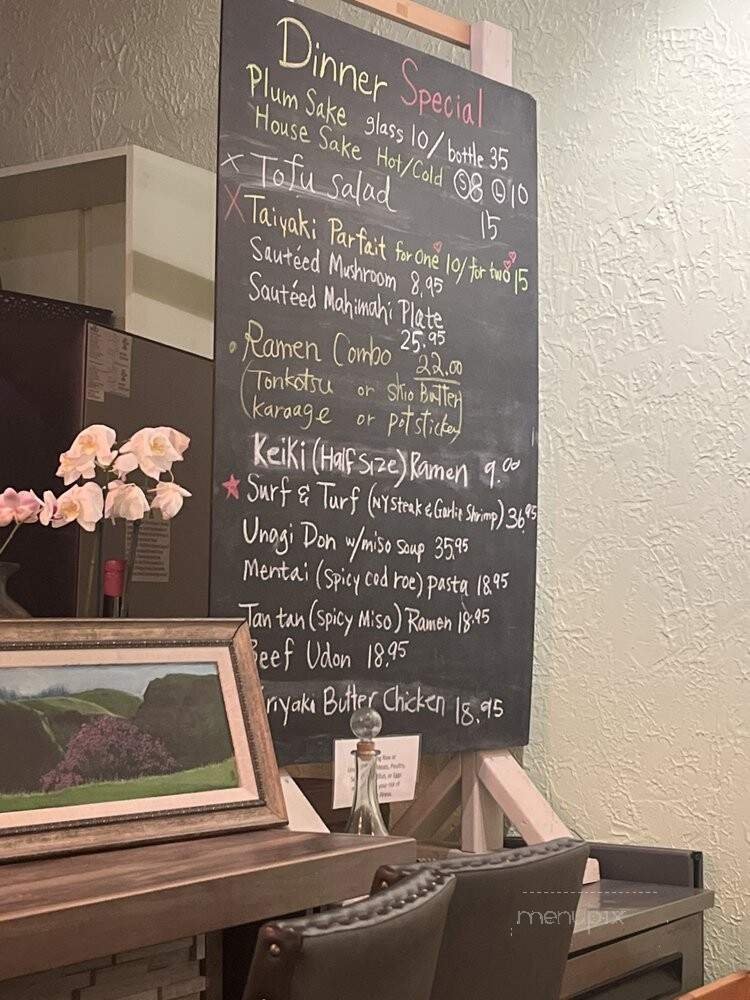 Dinner Special
Plum Sake glass 10/ bottle 35
House Sake Hot/Cold Ⓢ8 Ⓛ10
x Tofu Salad 15
X Taiyaki Parfait for one 10/ for two 15
Sautéed Mushroom 8.95
Sautéed Mahimahi Plate
25.95
• Ramen Combo 22.00
(Tonkotsu or shio Butter)
karaage or potsticker
Keiki (Half Size) Ramen 9.00
★ Surf & Turf (NY Steak & Garlic Shrimp) 36.95
Unagi Don w/miso soup 35.95
Mentai (spicy cod roe) pasta 18.95
Tan tan (Spicy Miso) Ramen 18.95
Beef Udon 18.95
riyaki Butter Chicken 18.95
menupix